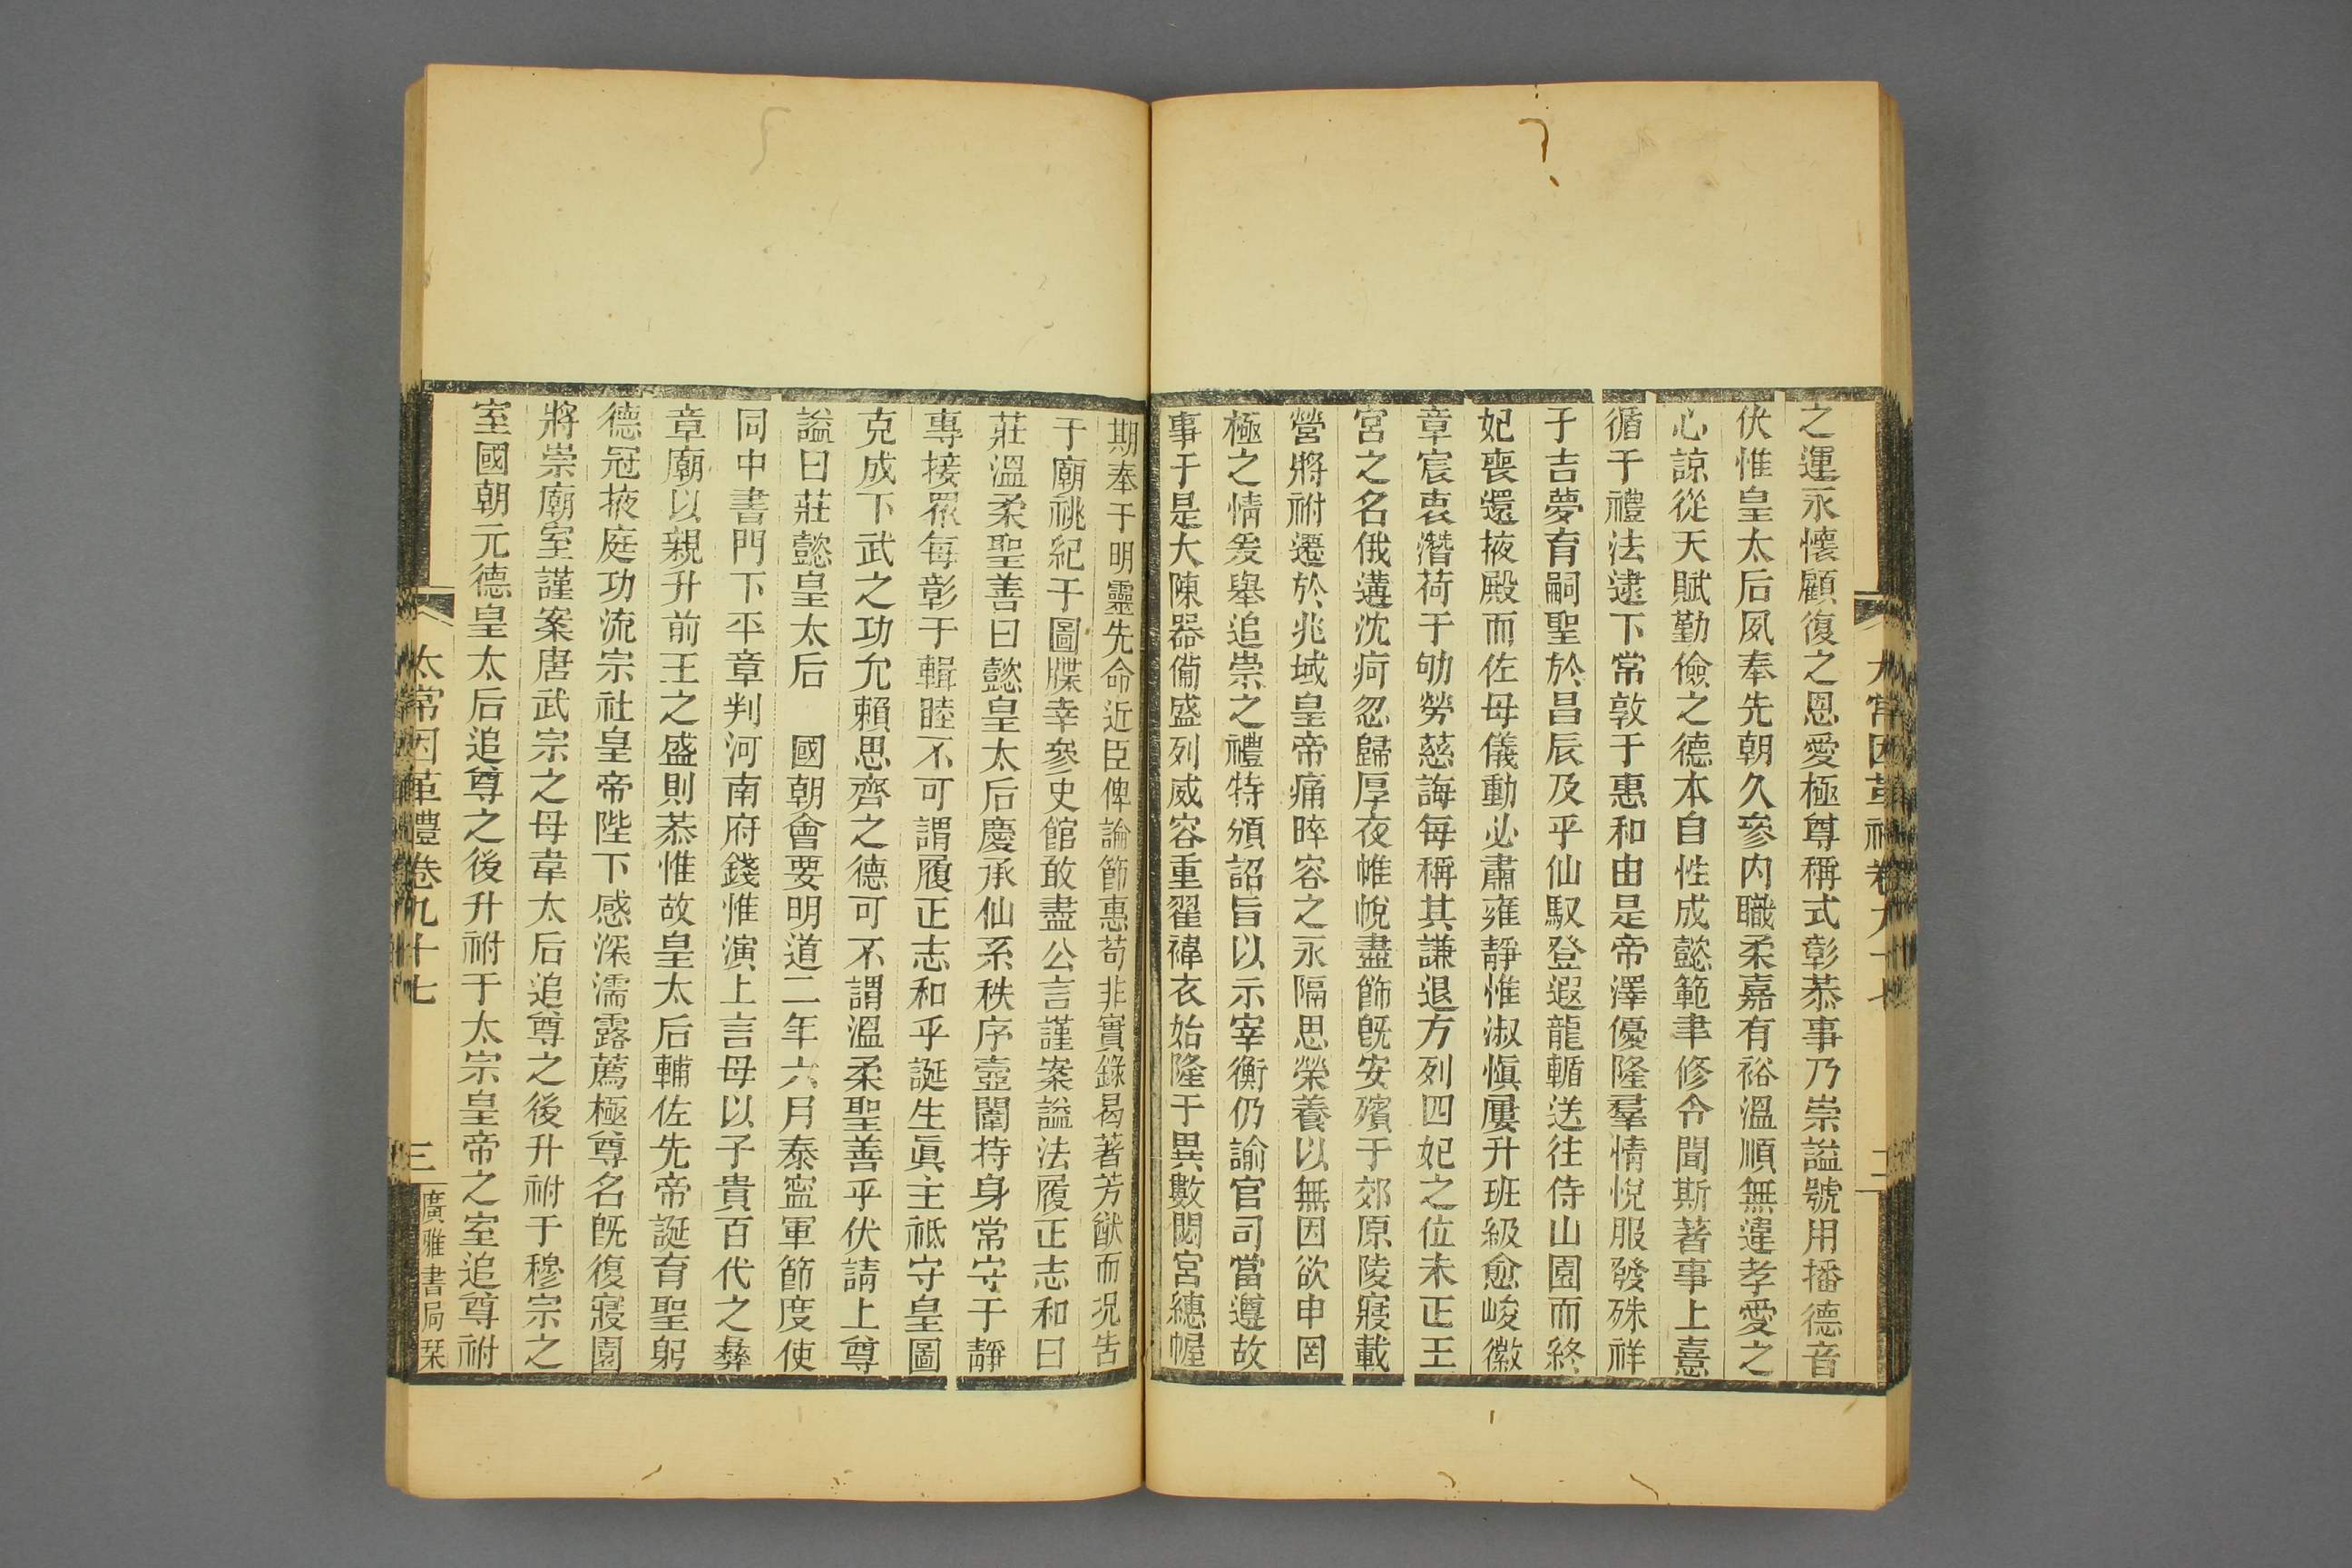 太常因革禮卷九十七
二
之運永懷顧復之恩愛極尊稱式彰恭事乃崇諡號用播德音
伏惟皇太后夙奉先朝久參内職柔嘉有裕溫順無違孝愛之
心諒從天賦勤儉之德本自性成懿範聿修令聞斯著事上憙
循于禮法逮下常敦于惠和由是帝澤優隆羣情悅服發殊祥
于吉夢育嗣聖於昌辰及乎仙馭登遐龍輴送往侍山園而終
妃喪還掖殿而佐母儀動必肅雍靜惟淑慎屢升班級愈峻徽
章宸衷潛荷于劬勞慈誨每稱其謙退方列四妃之位未正王
宮之名俄遘沈疴忽歸厚夜帷帨盡飾旣安殯于郊原陵寢載
營將祔遷於兆域皇帝痛睟容之永隔思榮養以無因欲申罔
極之情爰舉追崇之禮特頒詔旨以示宰衡仍諭官司當遵故
事于是大陳器備盛列威容重翟褘衣始隆于異數閟宮繐幄
期奉于明靈先命近臣俾論節惠苟非實錄曷著芳猷而況吿
于廟祧紀于圖牒幸參史館敢盡公言謹案諡法履正志和曰
莊溫柔聖善曰懿皇太后慶承仙系秩序壼闈持身常守于靜
專接眾每彰于輯睦不可謂履正志和乎誕生眞主祗守皇圖
克成下武之功允賴思齊之德可不謂溫柔聖善乎伏請上尊
諡曰莊懿皇太后　國朝會要明道二年六月泰寍軍節度使
同中書門下平章判河南府錢惟演上言母以子貴百代之彝
章廟以親升前王之盛則恭惟故皇太后輔佐先帝誕育聖躬
德冠掖庭功流宗社皇帝陛下感深濡露薦極尊名旣復寢園
將崇廟室謹案唐武宗之母韋太后追尊之後升祔于穆宗之
室國朝元德皇太后追尊之後升祔于太宗皇帝之室追尊祔
太常因革禮卷九十七
三
廣雅書局栞